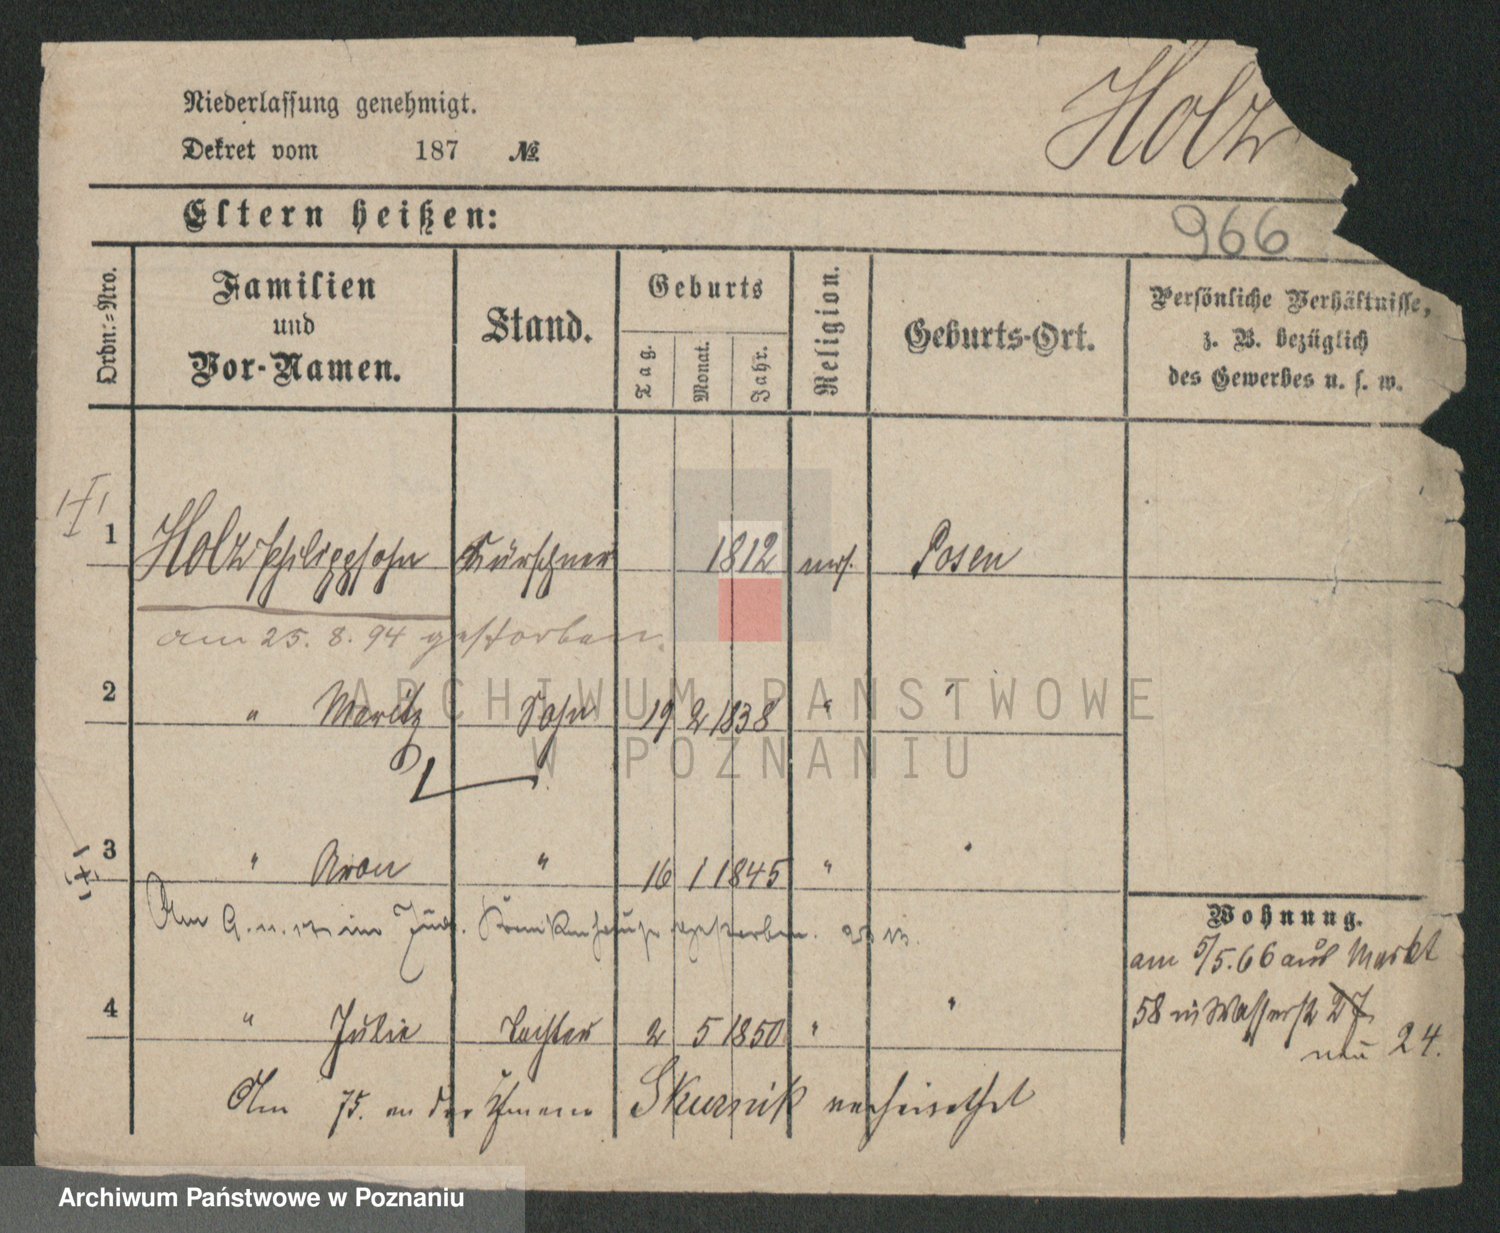 Holz
Niederlassung genehmigt.
Dekret vom 187 №
Eltern heißen:
966
Ordn.-Nro.
Familien
und
Vor-Namen.
Stand.
Geburts
Tag.
Monat.
Jahr.
Religion.
Geburts-Ort.
Persönliche Verhältnisse,
z. B. bezüglich
des Gewerbes u. s. w.
1 Holz Philippsohn Kürschner 1812 mos. Posen
am 25. 8. 94 gestorben.
2 " Moritz Sohn 19 2 1838 " "
ARCHIWUM PAŃSTWOWE
W POZNANIU
3 " Aron " 16 1 1845 " "
Am im Jüd. Krankenhause gestorben.
Wohnung.
am 5/5. 66 aus Markt
58 in Wasserstr 27
neu 24.
4 " Julie Tochter 2 5 1850 " "
Am 75. an der Skurnik verheirathet
Archiwum Państwowe w Poznaniu